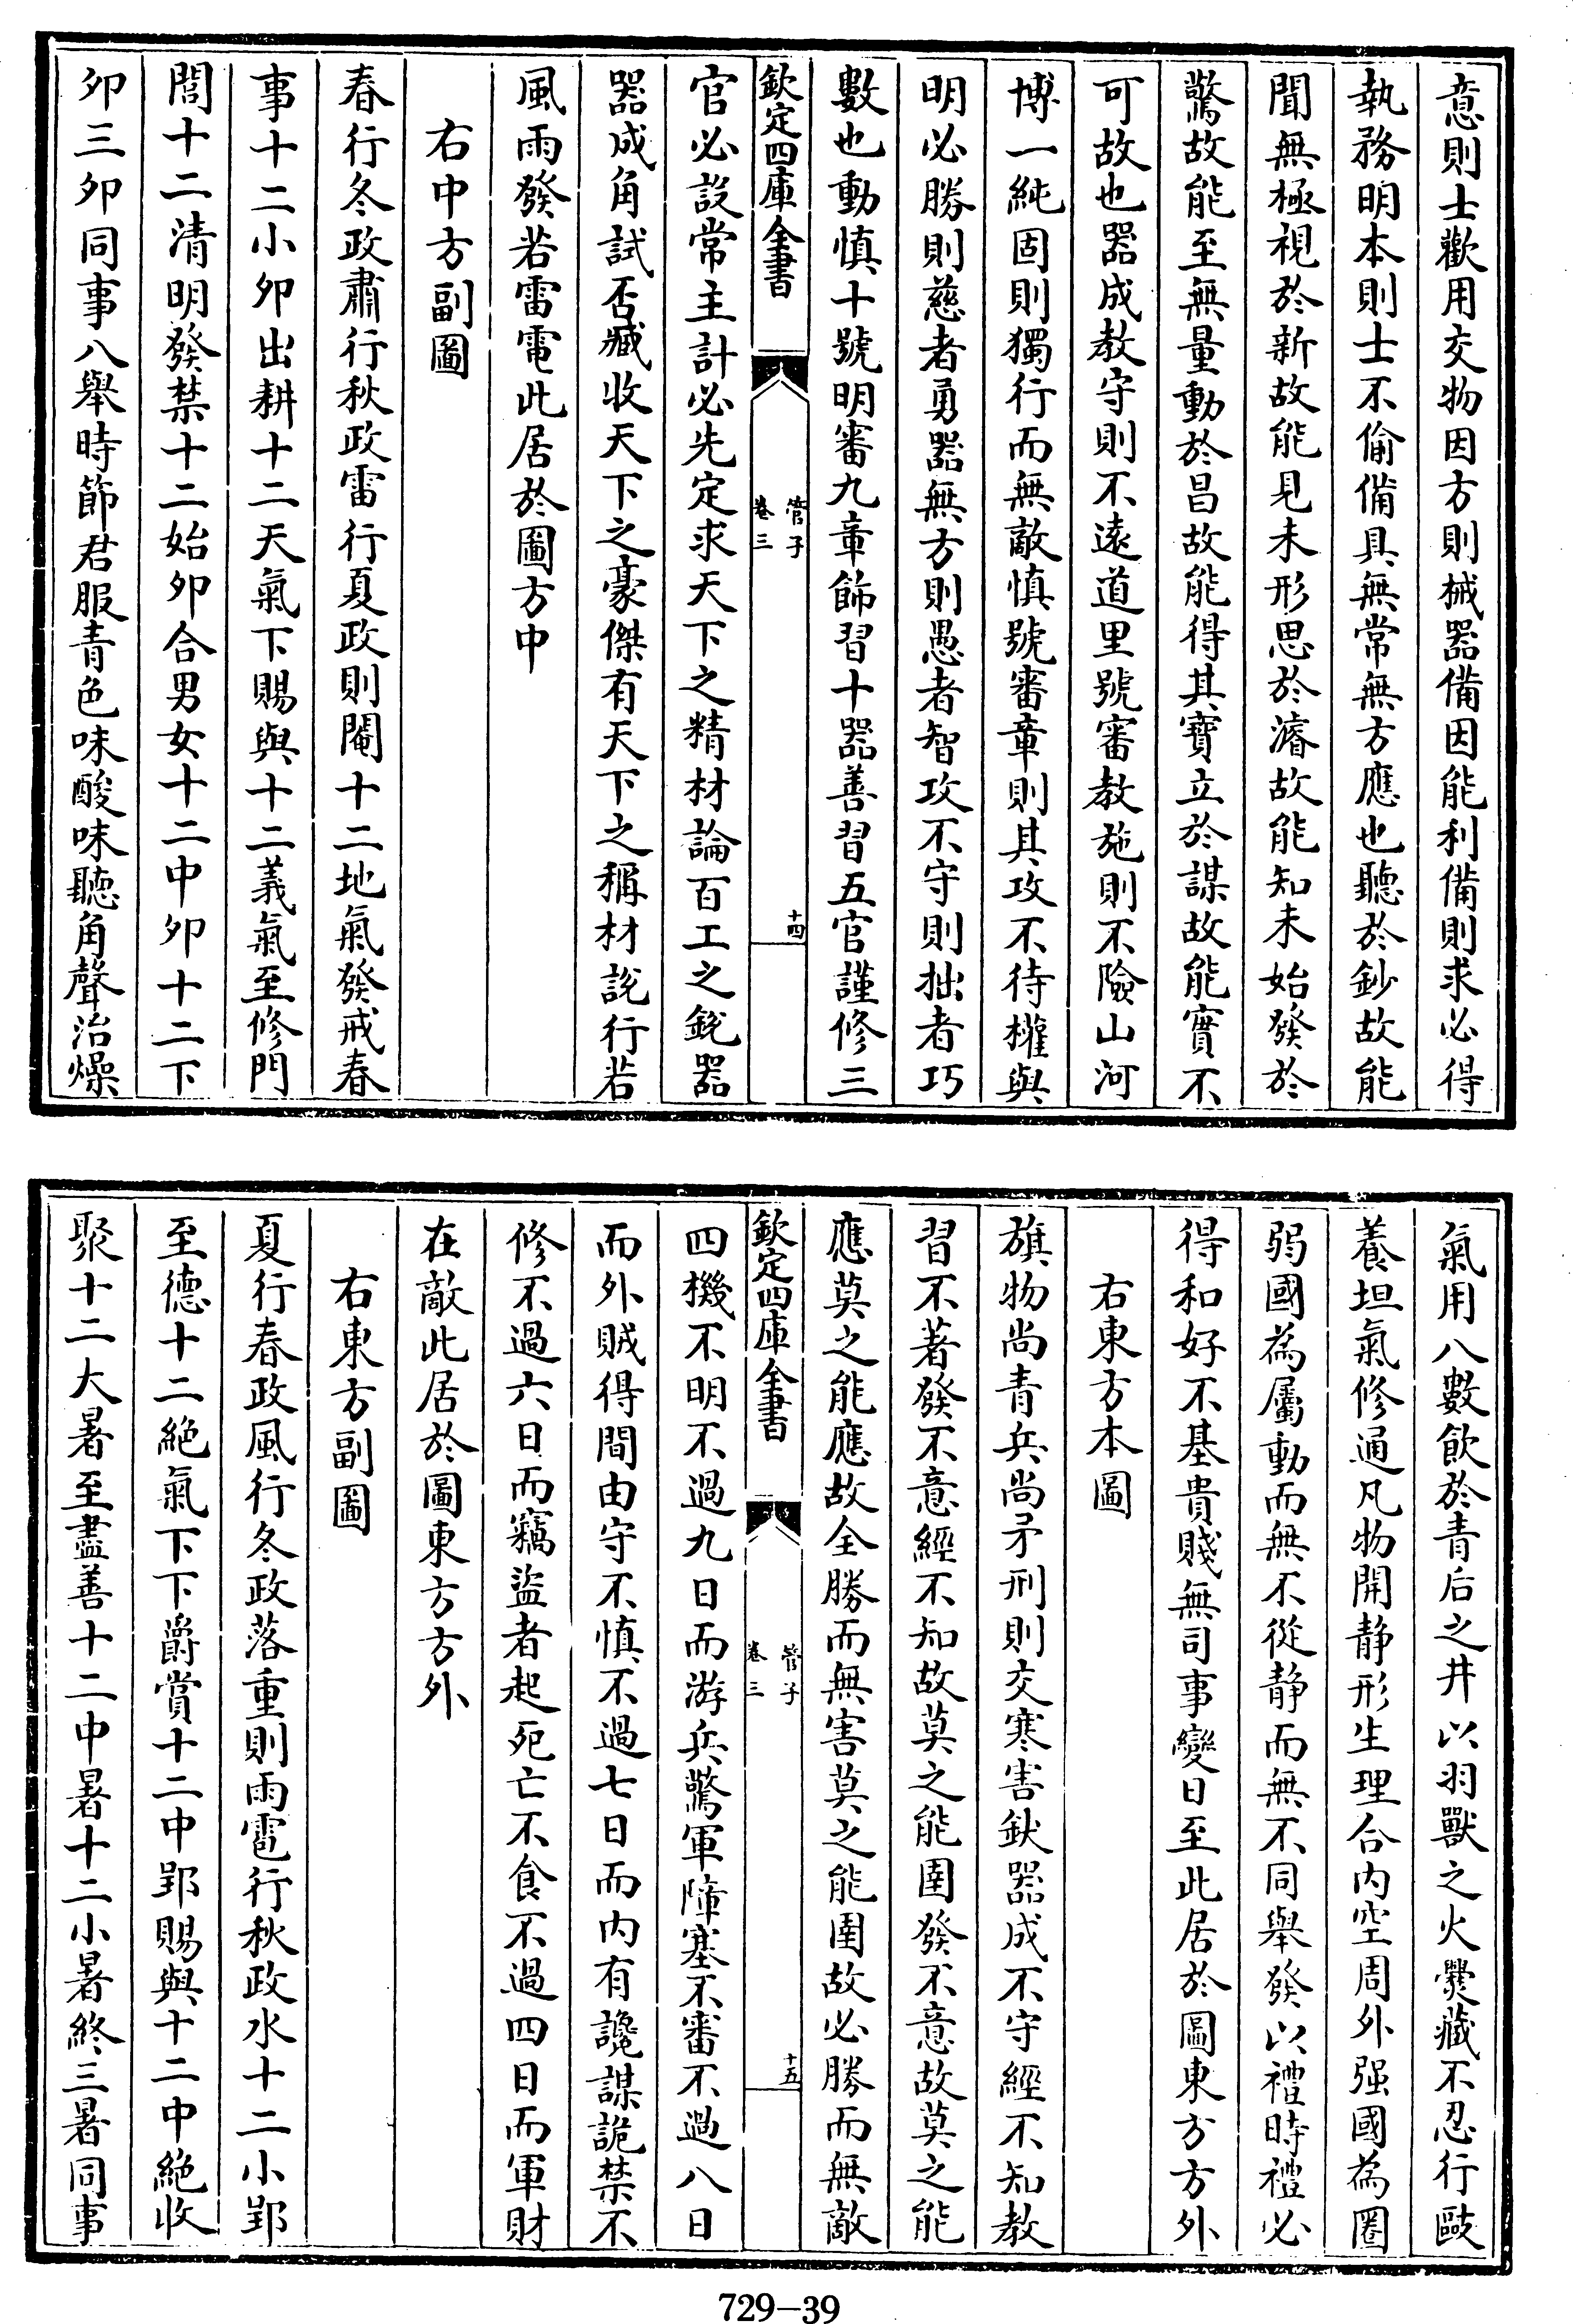 意則士歡用交物因方則械器備因能利備則求必得
執務明本則士不偷備具無常無方應也聽於鈔故能
聞無極視於新故能見未形思於濬故能知未始發於
驚故能至無量動於昌故能得其寶立於謀故能實不
可故也器成教守則不遠道里號審教施則不險山河
博一純固則獨行而無敵慎號審章則其攻不待權與
明必勝則慈者勇器無方則愚者智攻不守則拙者巧
數也動慎十號明審九章飾習十器善習五官謹修三
欽定四庫全書 管子 卷三 十四
官必設常主計必先定求天下之精材論百工之銳器
器成角試否臧收天下之豪傑有天下之稱材說行若
風雨發若雷電此居於圖方中
右中方副圖
春行冬政肅行秋政雷行夏政則閹十二地氣發戒春
事十二小夘出耕十二天氣下賜與十二義氣至修門
閭十二清明發禁十二始夘合男女十二中夘十二下
夘三夘同事八舉時節君服青色味酸味聽角聲治燥
氣用八數飲於青后之井以羽獸之火爨藏不忍行歐
養坦氣修通凡物開静形生理合内空周外强國為圈
弱國為屬動而無不從静而無不同舉發以禮時禮必
得和好不基貴賤無司事變日至此居於圖東方方外
右東方本圖
旗物尚青兵尚矛刑則交寒害釱器成不守經不知教
習不著發不意經不知故莫之能圉發不意故莫之能
應莫之能應故全勝而無害莫之能圉故必勝而無敵
欽定四庫全書 管子 卷三 十五
四機不明不過九日而游兵驚軍障塞不審不過八日
而外賊得間由守不慎不過七日而内有讒謀詭禁不
修不過六日而竊盜者起死亡不食不過四日而軍財
在敵此居於圖東方方外
右東方副圖
夏行春政風行冬政落重則雨雹行秋政水十二小郢
至德十二絶氣下下爵賞十二中郢賜與十二中絶收
聚十二大暑至盡善十二中暑十二小暑終三暑同事
729-39